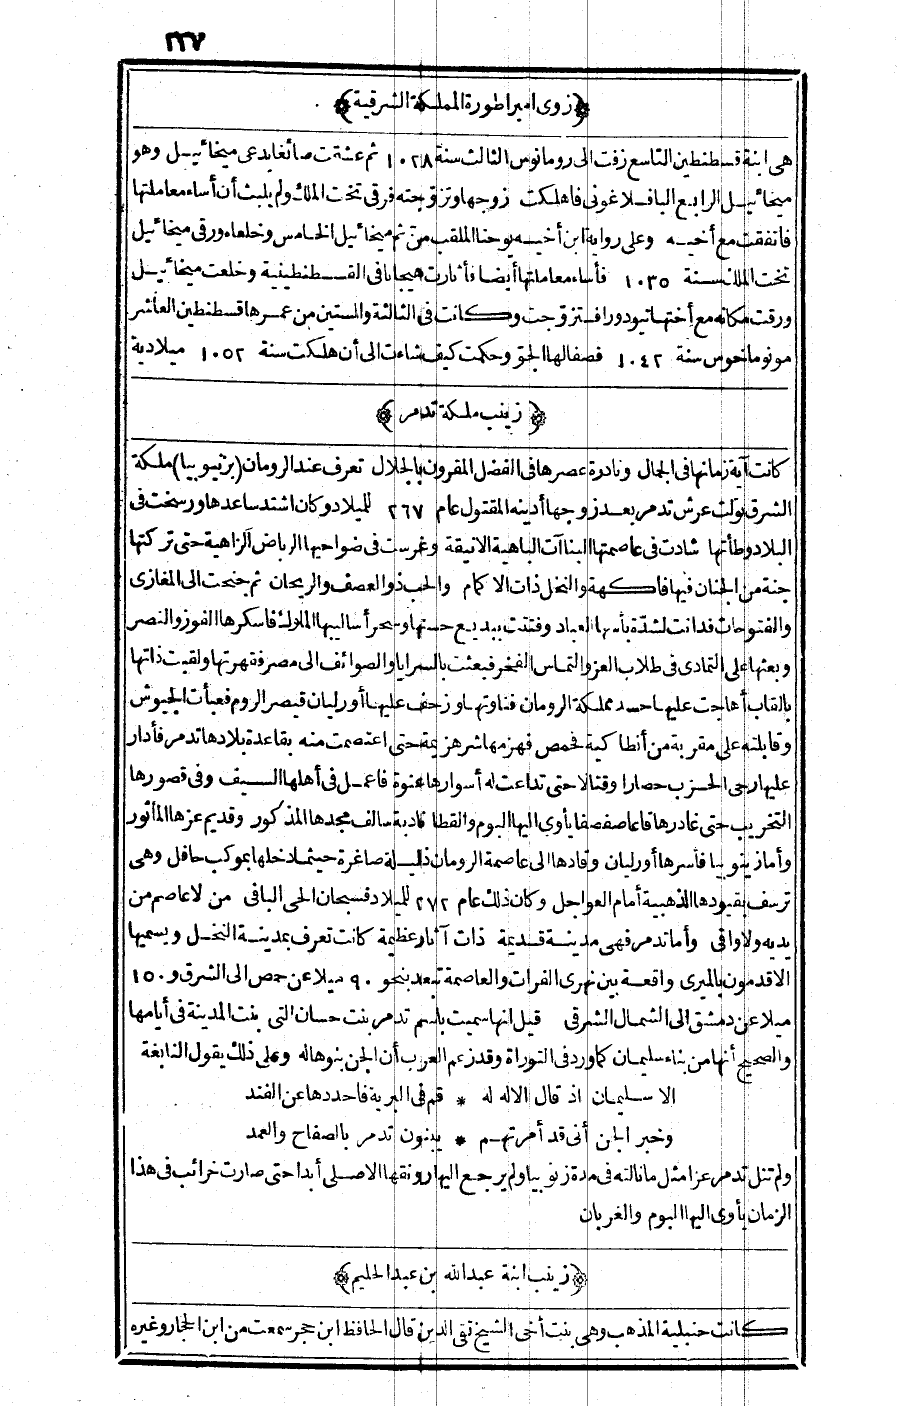 ٢٢٧
﴿زوى امبراطورة المملكة الشرقية﴾
هى ابنة قسطنطين التاسع زفت الى رومانوس الثالث سنة ١٠٢٨ ثم عشقت صائغا يدعى ميخائيل وهو
ميخائيل الرابع البافلاغونى فاهلكت زوجها وتزوجته فرقى تخت الملك ولم يلبث أن أساء معاملتها
فاتفقت مع أخيه وعلى رواية ابن أخيه يوحنا الملقب من ثم ميخائيل الخامس وخلعاه ورقى ميخائيل
تخت الملك سنة ١٠٣٥ فأساء معاملتها أيضا فأثارت هيجانا فى القسطنطينية وخلعت ميخائيل
ورقت مكانه مع أختها تيودورا فتزوجت وكانت فى الثالثة والستين من عمرها قسطنطين العاشر
مونوماخوس سنة ١٠٤٢ فصفا لها الجو وحكمت كيف شاءت الى أن هلكت سنة ١٠٥٢ ميلادية
﴿زينب ملكة تدمر﴾
كانت آية زمانها فى الجمال ونادرة عصرها فى الفضل المقرون بالجلال تعرف عند الرومان (بزنيوبيا) ملكة
الشرق تولت عرش تدمر بعد زوجها أدينه المقتول عام ٢٦٧ للميلاد وكان اشتد ساعدها ورسخت فى
البلاد وطأتها شادت فى عاصمتها البناآت الباهية الانيقة وغرست فى ضواحيها الرياض الزاهية حتى تركتها
جنة من الجنان فيها فاكهة والنخل ذات الاكمام والحب ذو العصف والريحان ثم جنحت الى المغازى
والفتوحات فدانت لشدة بأسها العباد وفتنت ببديع حسنها وسحر أساليبها الملوك فاسكرها الفوز والنصر
وبعثها على التمادى فى طلاب العز والتماس الفخر فبعثت بالسرايا والصوائف الى مصر فقهرتها ولقبت ذاتها
بالقاب أهاجت عليها حسد مملكة الرومان فناوتها وزحف عليها أورليان قيصر الروم فعبأت الجيوش
وقابلته على مقربة من أنطاكية فحمص فهزمها شر هزيمة حتى اعتصمت منه بقاعدة بلادها تدمر فأدار
عليها رحى الحرب حصارا وقتالا حتى تداعت له أسوارها عنوة فاعمل فى أهلها السيف وفى قصورها
التخريب حتى غادرها قاعا صفصفا يأوى اليها البوم والقطا نادبة سالف مجدها المذكور وقديم عزها المأثور
وأما زينوبيا فأسرها أورليان وقادها الى عاصمة الرومان ذليلة صاغرة حيثما دخلها بموكب حافل وهى
ترسف بقيودها الذهبية أمام العواجل وكان ذلك عام ٢٧٢ للميلاد فسبحان الحى الباقى من لا عاصم من
يديه ولا واقى وأما تدمر فهى مدينة قديمة ذات آثار عظيمة كانت تعرف بمدينة النخل ويسميها
الاقدمون بالميرى واقعة بين نهرى الفرات والعاصمة تبعد بنحو ٩٠ ميلا عن حمص الى الشرق و١٥٠
ميلا عن دمشق الى الشمال الشرقى قيل انها سميت باسم تدمر بنت حسان التى بنت المدينة فى أيامها
والصحيح أنها من بناء سليمان كما ورد فى التوراة وقد زعم العرب أن الجن بنوها له وعلى ذلك يقول النابغة
الا سليمان اذ قال الاله له * قم فى البرية فاحددها عن الفند
وخبر الجن أنى قد أمرتهم * يبنون تدمر بالصفاح والعمد
ولم تنل تدمر عزا مثل ما نالته فى مدة زنوبيا ولم يرجع اليها رونقها الاصلى أبدا حتى صارت خرائب فى هذا
الزمان يأوى اليها البوم والغربان
﴿زينب ابنة عبدالله بن عبدالحليم﴾
كانت حنبلية المذهب وهى بنت أخى الشيخ تقى الدين قال الحافظ ابن حجر سمعت من ابن الحجار وغيره